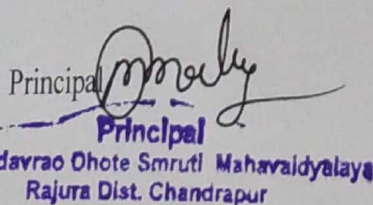 Principal
Principal
davrao Dhote Smruti Mahavaidyalaya
Rajura Dist. Chandrapur